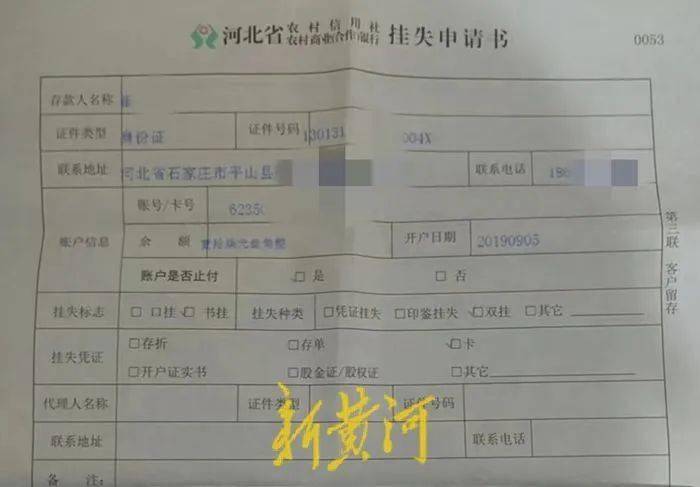 河北省 农村信用社 农村商业(合作)银行 挂失申请书 0053
存款人名称
证件类型 身份证 证件号码 130131 004X
联系地址 河北省石家庄市平山县 联系电话 186
账户信息 账号/卡号 6235
余额 开户日期 20190905
账户是否止付 ☑是 □否
挂失标志 □口挂 ☑书挂 挂失种类 □凭证挂失 □印鉴挂失 ☑双挂 □其它
挂失凭证 □存折 □存单 ☑卡
□开户证实书 □股金证/股权证 □其它
代理人名称 证件类型 证件号码
联系地址 联系电话
备 注:
第三联 客户留存
新黄河